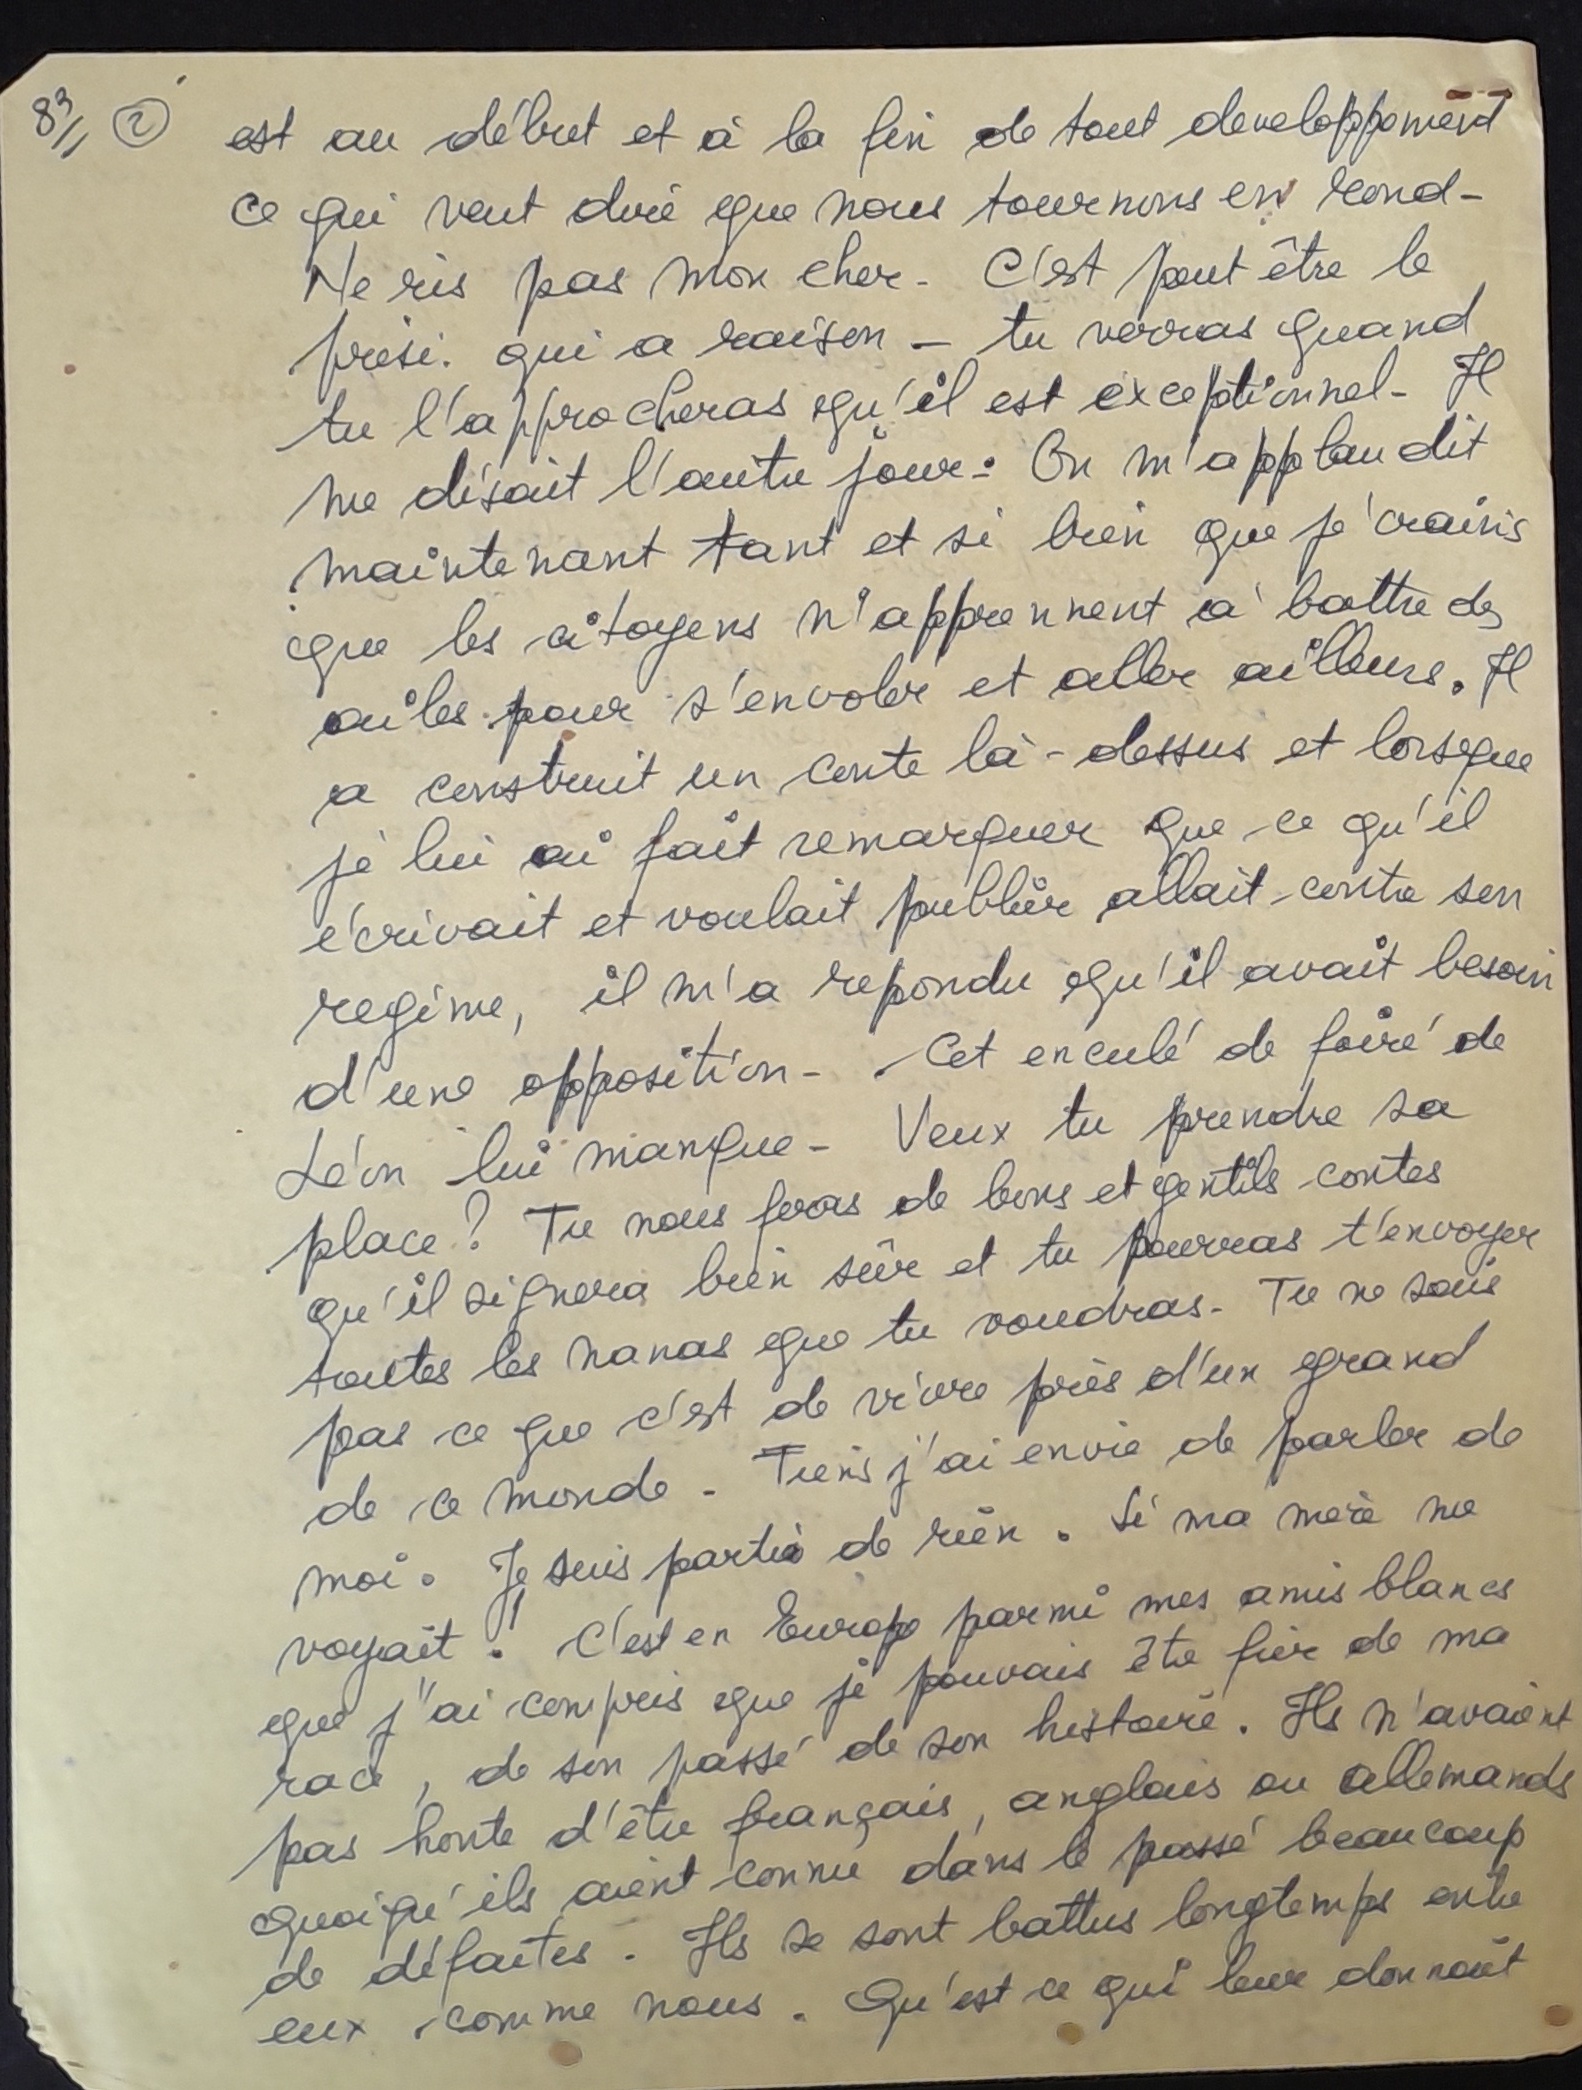 83 ② est au début et à la fin de tout developpement
ce qui veut dire que nous tournons en rond -
Ne ris pas mon cher - C'est peut être le
prési. qui a raison - tu verras quand
tu l'approcheras qu'il est exceptionnel - Il
me disait l'autre jour : On m'applaudit
maintenant tant et si bien que je crains
que les citoyens n'apprennent à battre des
ailes pour s'envoler et aller ailleurs. Il
a construit un conte là-dessus et lorsque
je lui ai fait remarquer que ce qu'il
écrivait et voulait publier allait contre son
regime, il m'a repondu qu'il avait besoin
d'une opposition - Cet enculé de foiré de
Léon lui manque - Veux tu prendre sa
place ? Tu nous feras de bons et gentils contes
qu'il signera bien sûr et tu pourras t'envoyer
toutes les nanas que tu voudras - Tu ne sais
pas ce que c'est de vivre près d'un grand
de ce monde - Tiens j'ai envie de parler de
moi. Je suis parti de rien. Si ma mère me
voyait ! C'est en Europe parmi mes amis blancs
que j'ai compris que je pouvais être fier de ma
race, de son passé de son histoire. Ils n'avaient
pas honte d'être français, anglais ou allemands
quoiqu'ils aient connu dans le passé beaucoup
de défaites. Ils se sont battus longtemps entre
eux comme nous. Qu'est ce qui leur donnait